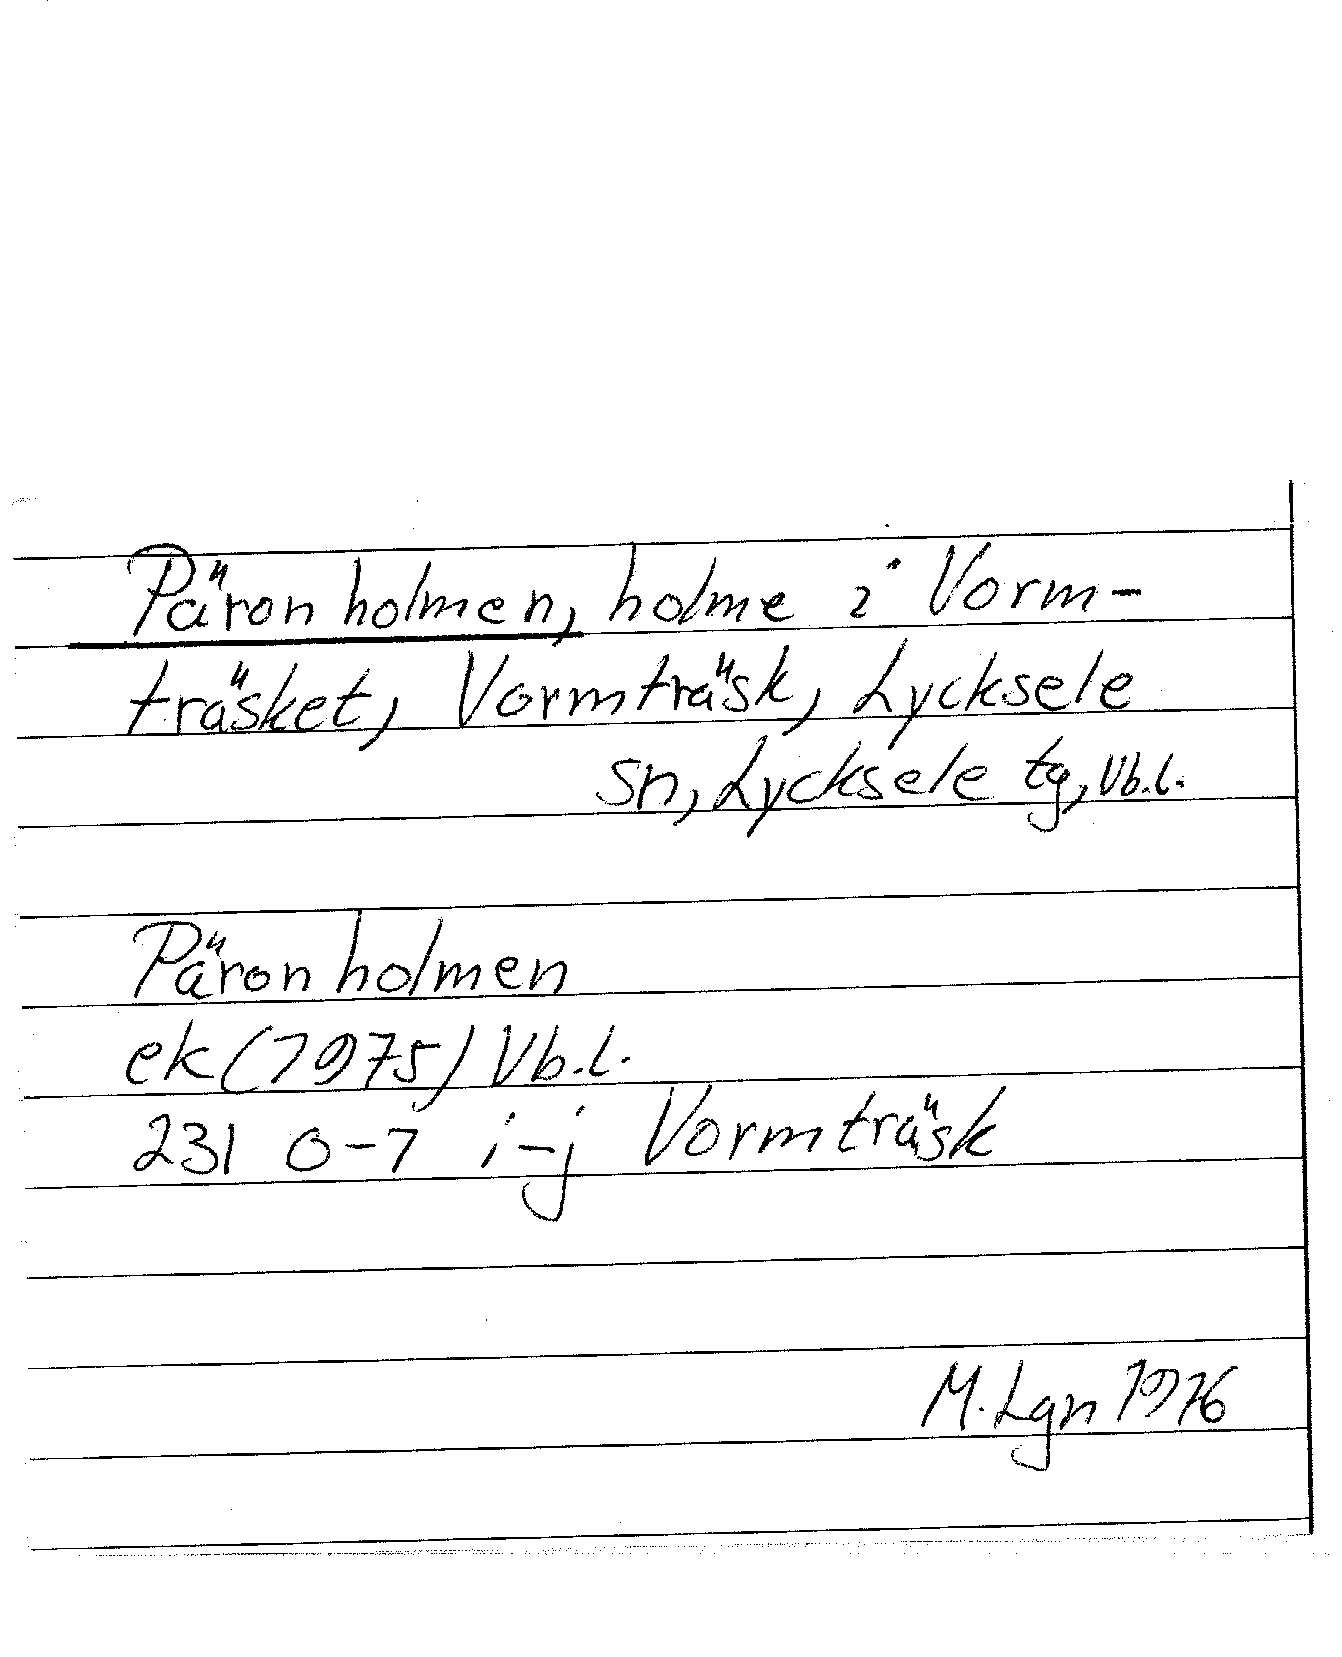 Päronholmen, holme i Vorm-
träsket, Vormträsk, Lycksele
sn, Lycksele tg, Vb.l.
Päronholmen
ek (1975) Vb.l.
231 0-7 i-j Vormträsk
M. Lgn 1976